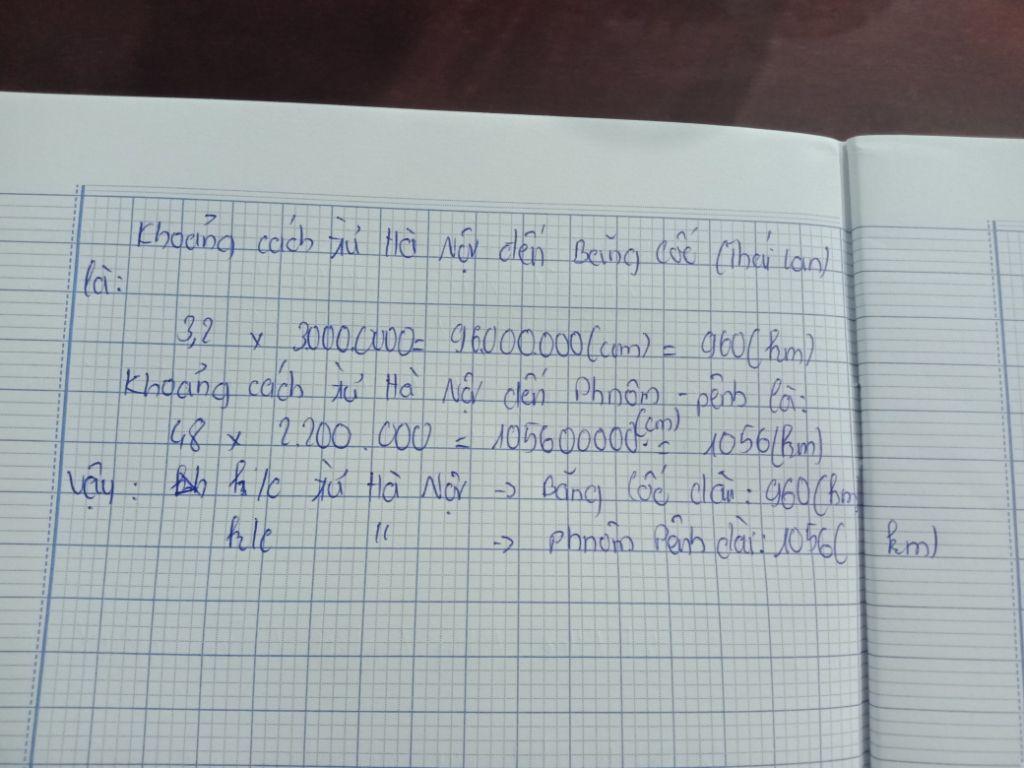 Khoảng cách từ Hà Nội đến Băng Cốc (Thái Lan)
là:
3,2 x 3000000= 96000000(cm) = 960(km)
Khoảng cách từ Hà Nội đến Phnôm - pênh là:
48 x 2.200.000 = 105600000(cm) = 1056(km)
Vậy: k/c từ Hà Nội → Băng Cốc dài: 960(km
k/c " → phnôm Pênh dài: 1056( km)